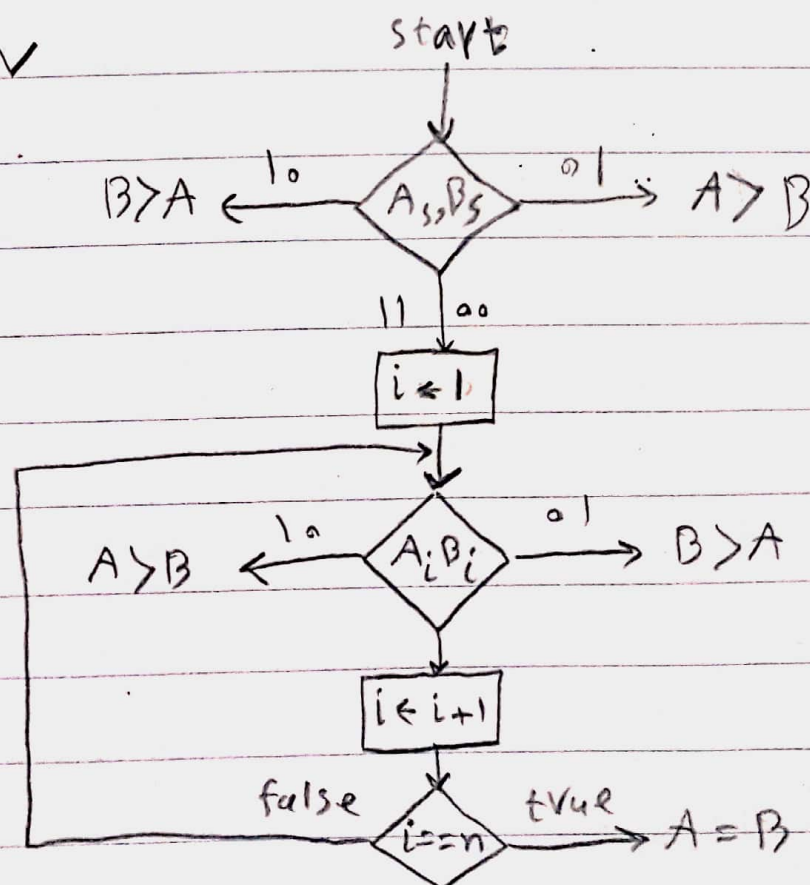 start
B>A 10 As,Bs 01 A>B
11 00
i ← 1
A>B 10 AiBi 01 B>A
i ← i+1
false i==n true A=B